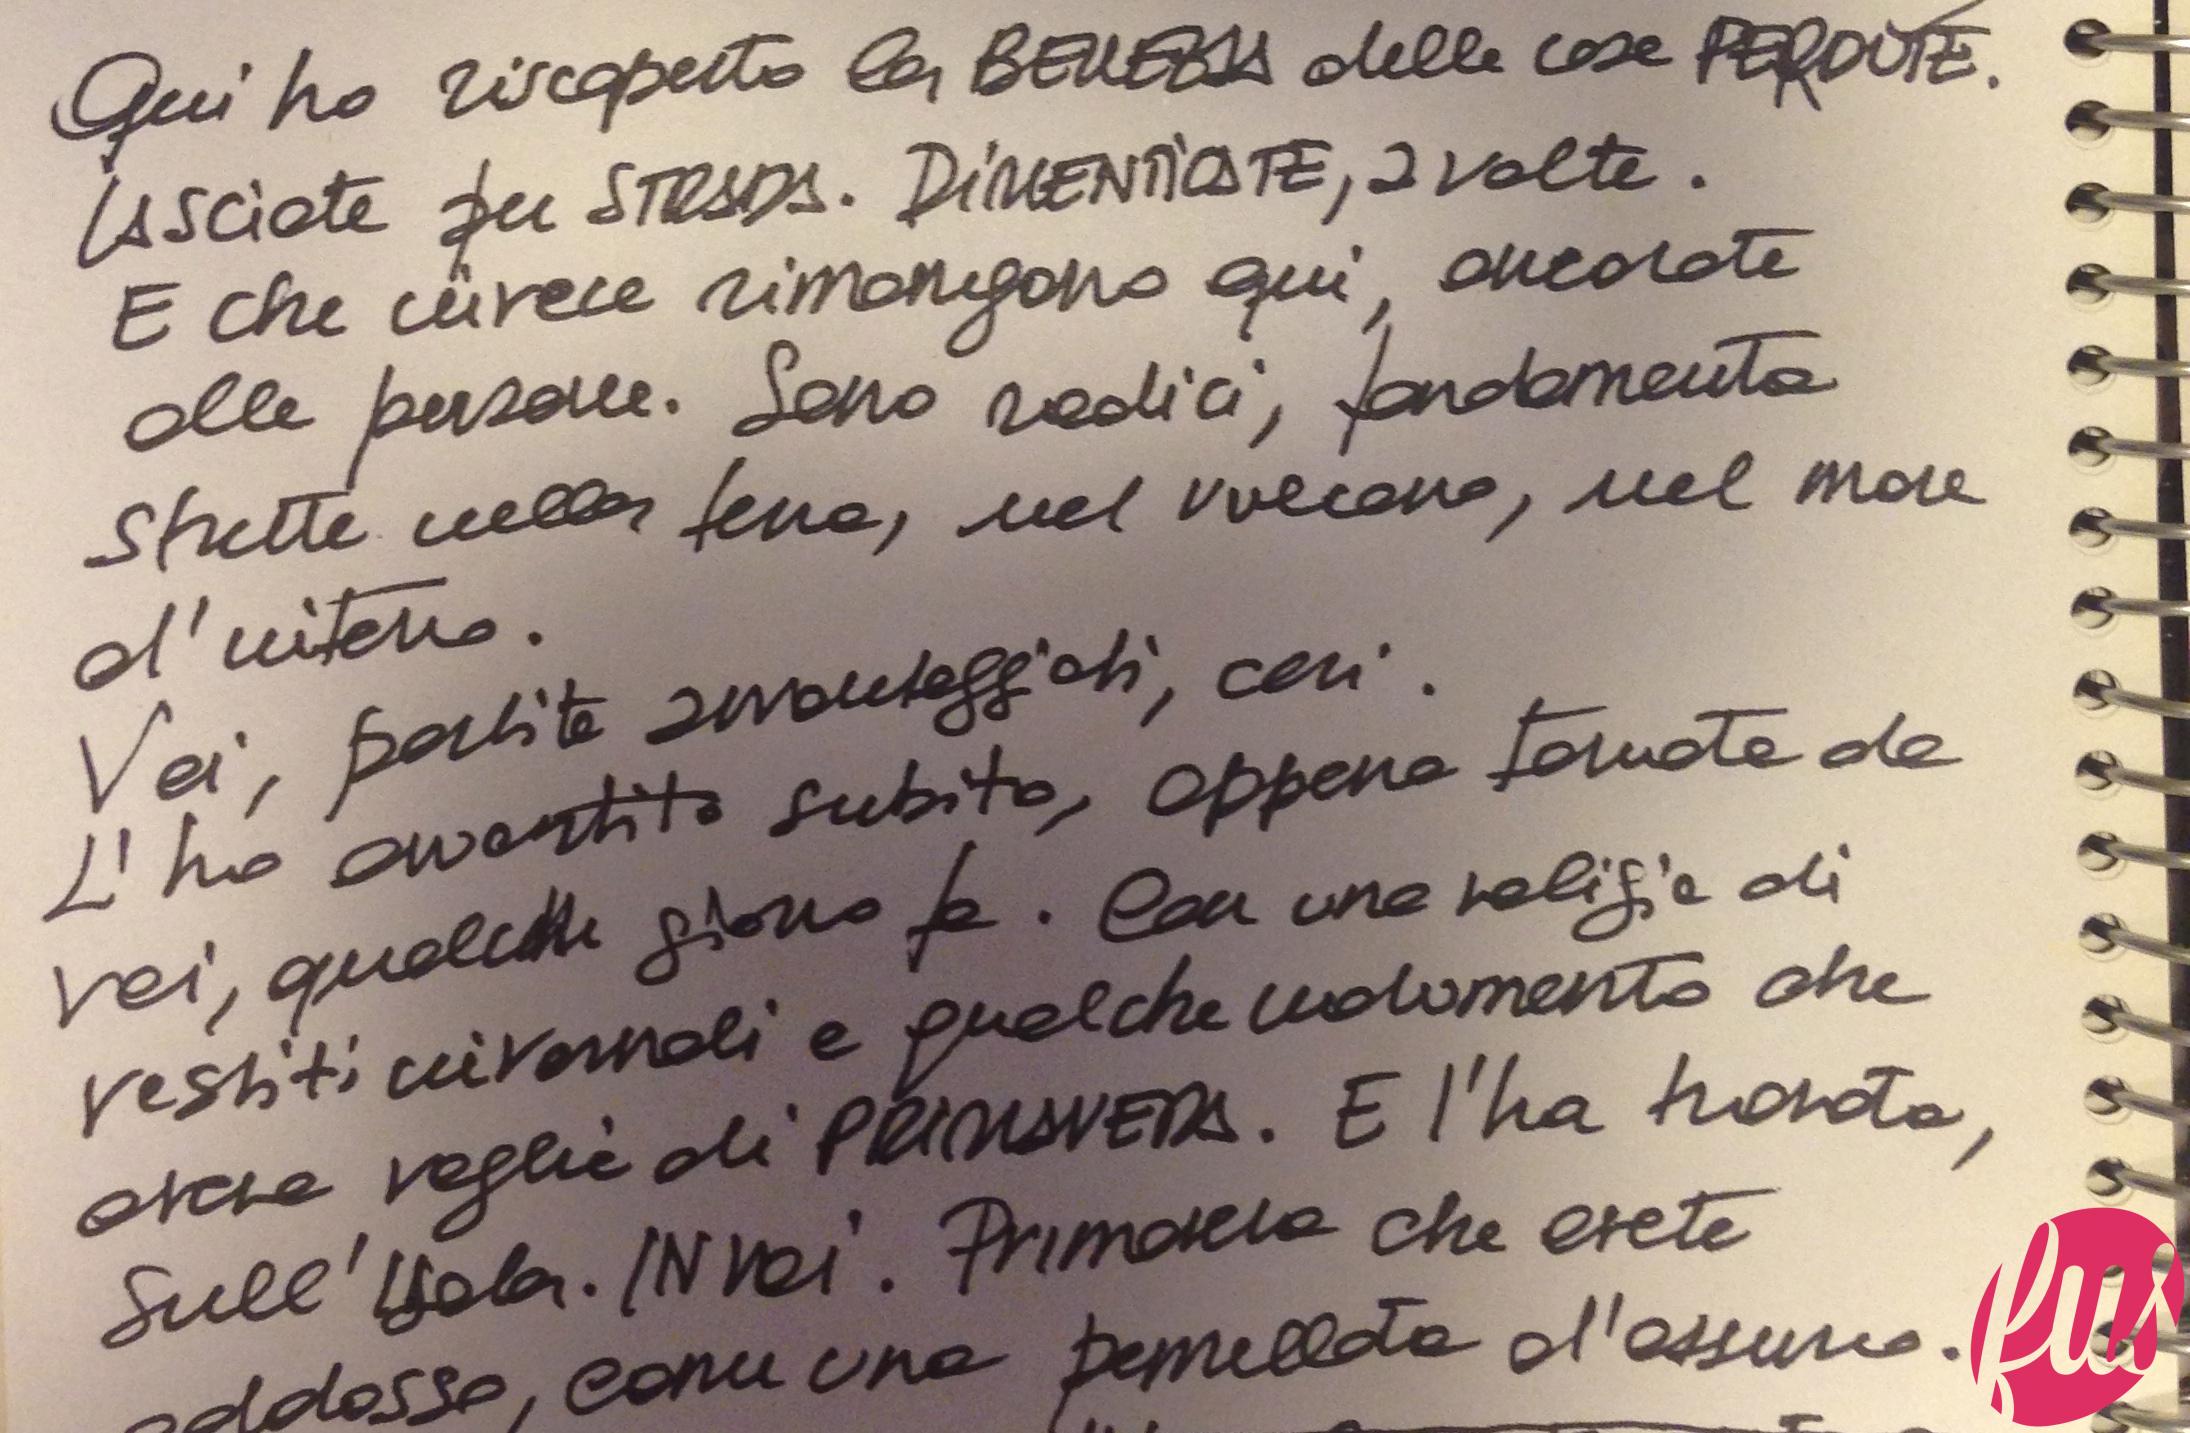 Qui ho riscoperto la BELLEZZA delle cose PERDUTE.
lasciate per STRADA. DIMENTICATE, a volte.
E che invece rimangono qui, ancorate
alle persone. Sono radici, fondamenta
strette nella terra, nel vulcano, nel mare
d'interno.
Voi, partite avvantaggiati, così.
L'ho avvertito subito, appena tornata da
voi, qualche giorno fa. Con una valigia di
vestiti invernali e qualche indumento che
aveva voglia di PRIMAVERA. E l'ha trovata,
sull'Isola. IN VOI. Primavera che avete
addosso, come una pennellata d'azzurro.
fus